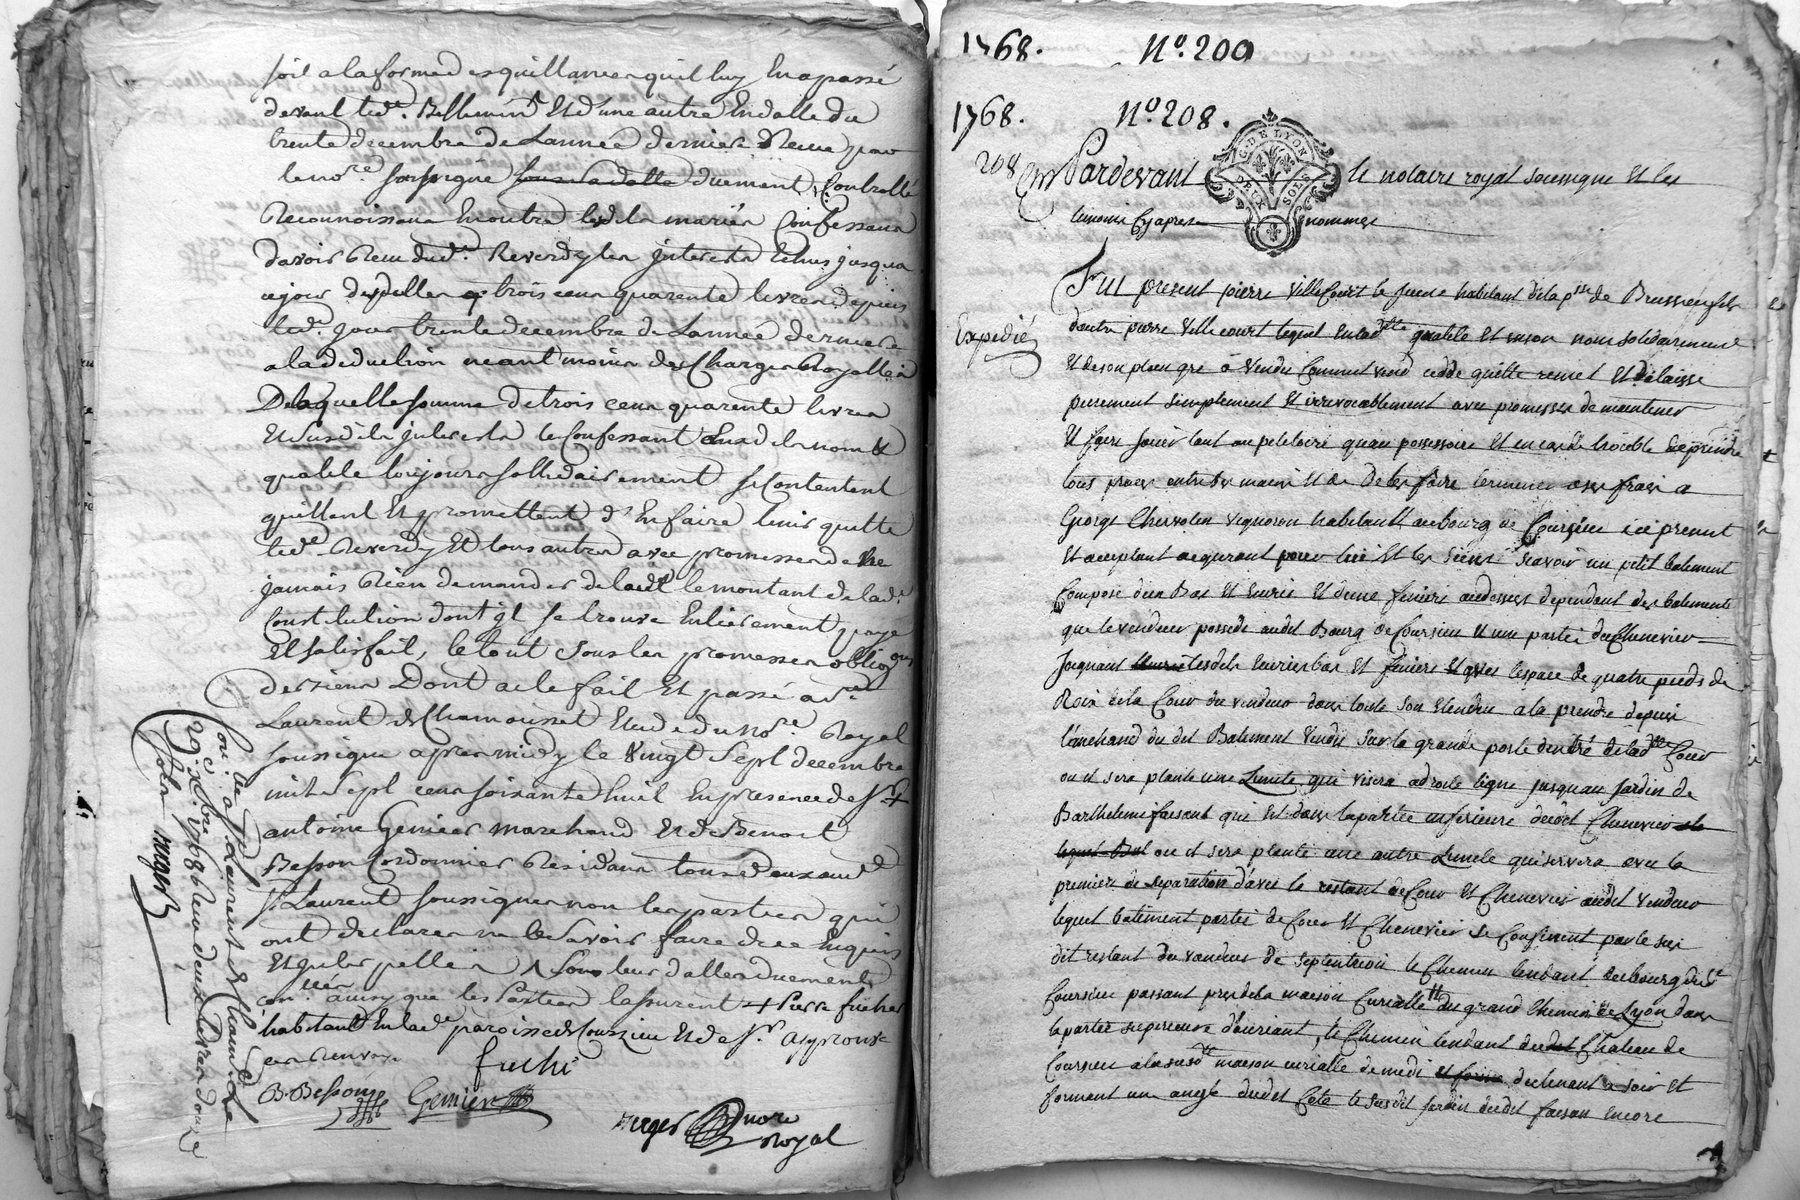 soit a la forme des quittances quil luy En a passé
devant led.e Bellemin Et d'une autre En datte du
trente decembre de L'année derniere Reçue par
le no.re soussigné sous sa datte duement Controllé
Reconnoissans En outre lesd. la mariés Confessans
davoir Reçu dud.t Reverdy les interests Echus jusqua
ce jour trois cens quarente livres depuis
led. jour trente decembre de L'année derniere
a la deduction neant moins des Charges Royalles
De laquelle somme de trois cens quarente livres
Et susd. interests le Confessant Ensd. noms &
qualité toujours sollidairement se Contentent
quittent Et promettent d'En faire tenir quitte
led.t Reverdy Et tous autres avec promesse de ne
jamais Rien demander de le montant de lad.e
Constitution dont il se trouve Entierement payé
Et satisfait, le tout sous les promesses oblig.ons
Dont acte fait Et passé a St
Laurent de Chamousset Etude du No.re Royal
soussigné apres midy le vingt sept decembre
mil sept cens soixante huit En presence de Sr. +
antoine Genier marchand Et de Benoit
Besson Cordonnier Residans tous deux aud.
St Laurent soussignés non les parties qui
ont declaré ne le savoir faire de ce Enquis
Et interpellés
ainsy que les Parties lassurent + Pierre fucher
habitant En lad.e paroisse de Courzieu Et de Sr.
en Renvoy.
fuchi
B. Besson Genier
Verger nore
Royal
Con.lé a St Laurent de Chamousset Le
29 Xbre 1768 Reçu deux livres douze
Sols verger
1768. No. 200
1768. No. 208.
208
G. DE LYON
DEUX SOLS
Pardevant le notaire royal soussigné Et les
temoins Cy apres nommés
Expedié
Fut present pierre Villecourt le jeune habitant de la p.sse de Brussieu fils
dautre pierre Villecourt lequel En lad.te qualité Et en son nom solidairement
Et de son plein gré a Vendu Comme il vend cedde quitte remet Et délaisse
purement simplement Et irrevocablement avec promesses de maintenir
Et faire jouir tant au petitoire quau possessoire Et en cas de trouble de prendre
tous procès entre ses mains Et de les faire terminer a ses frais a
George Chervolin vigneron habitant au bourg de Coursieu ici present
Et acceptant acquerant pour lui Et les siens scavoir un petit batiment
Composé dun Bas Et Ecurie Et d'une feniere audessus dependant des batiments
que le vendeur possede audit Bourg de Coursieu Et une partie du Chenevier
Joignant lesdits Ecurie bas Et feniere Et apres l'espace de quatre pieds de
Roix de la Cour du vendeur dans toute son Etendue a la prendre depuis
l'Enchand du dit Batiment Vendu sur la grande porte d'entré de lad.te Cour
ou il sera planté une Limite qui visera a droite ligne jusquau jardin de
Barthelemi faisant qui Est dans la partie inferieure dudit Chenevier
ou il sera planté une autre Limite qui servira avec la
premiere de separation d'avec le restant de Cour Et Chenevier audit vendeur
lequel batiment partie de Cour Et Chenevier se Confinent par le sus
dit restant du vendeur de Septentrion le Chemin tendant du bourg dudit
Coursieu passant pres de la maison Curialle au grand Chemin de Lyon dans
la partie superieure d'orient, le Chemin tendant du Chateau de
Coursieu a la susd.te maison curialle de midi declinant a soir Et
formant un angle dudit Coté le susdit jardin dudit faisan encore